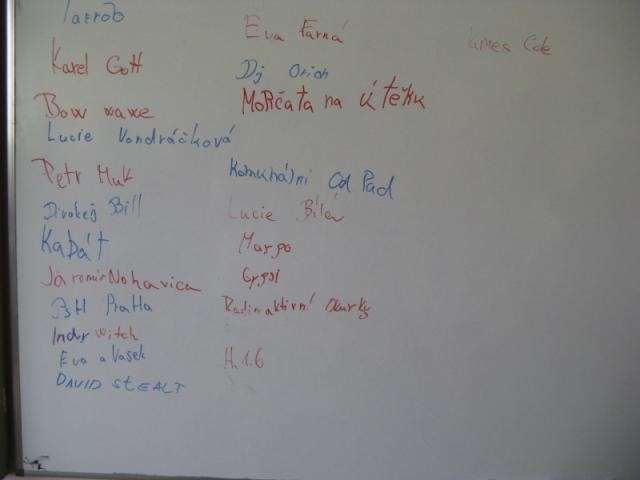 Tarrob
Karel Gott
Bow wawe
Lucie Vondráčková
Petr Muk
Divokej Bill
Kabát
Jaromír Nohavica
PSH Praha
Indy witch
Eva a Vašek
DAVID StEALT
Eva Farná
Dj Orion
MoRčata na útěku
Komunální Od Pad
Lucie Bílá
Margo
Gypsi
Radioaktivní Okurky
H.16